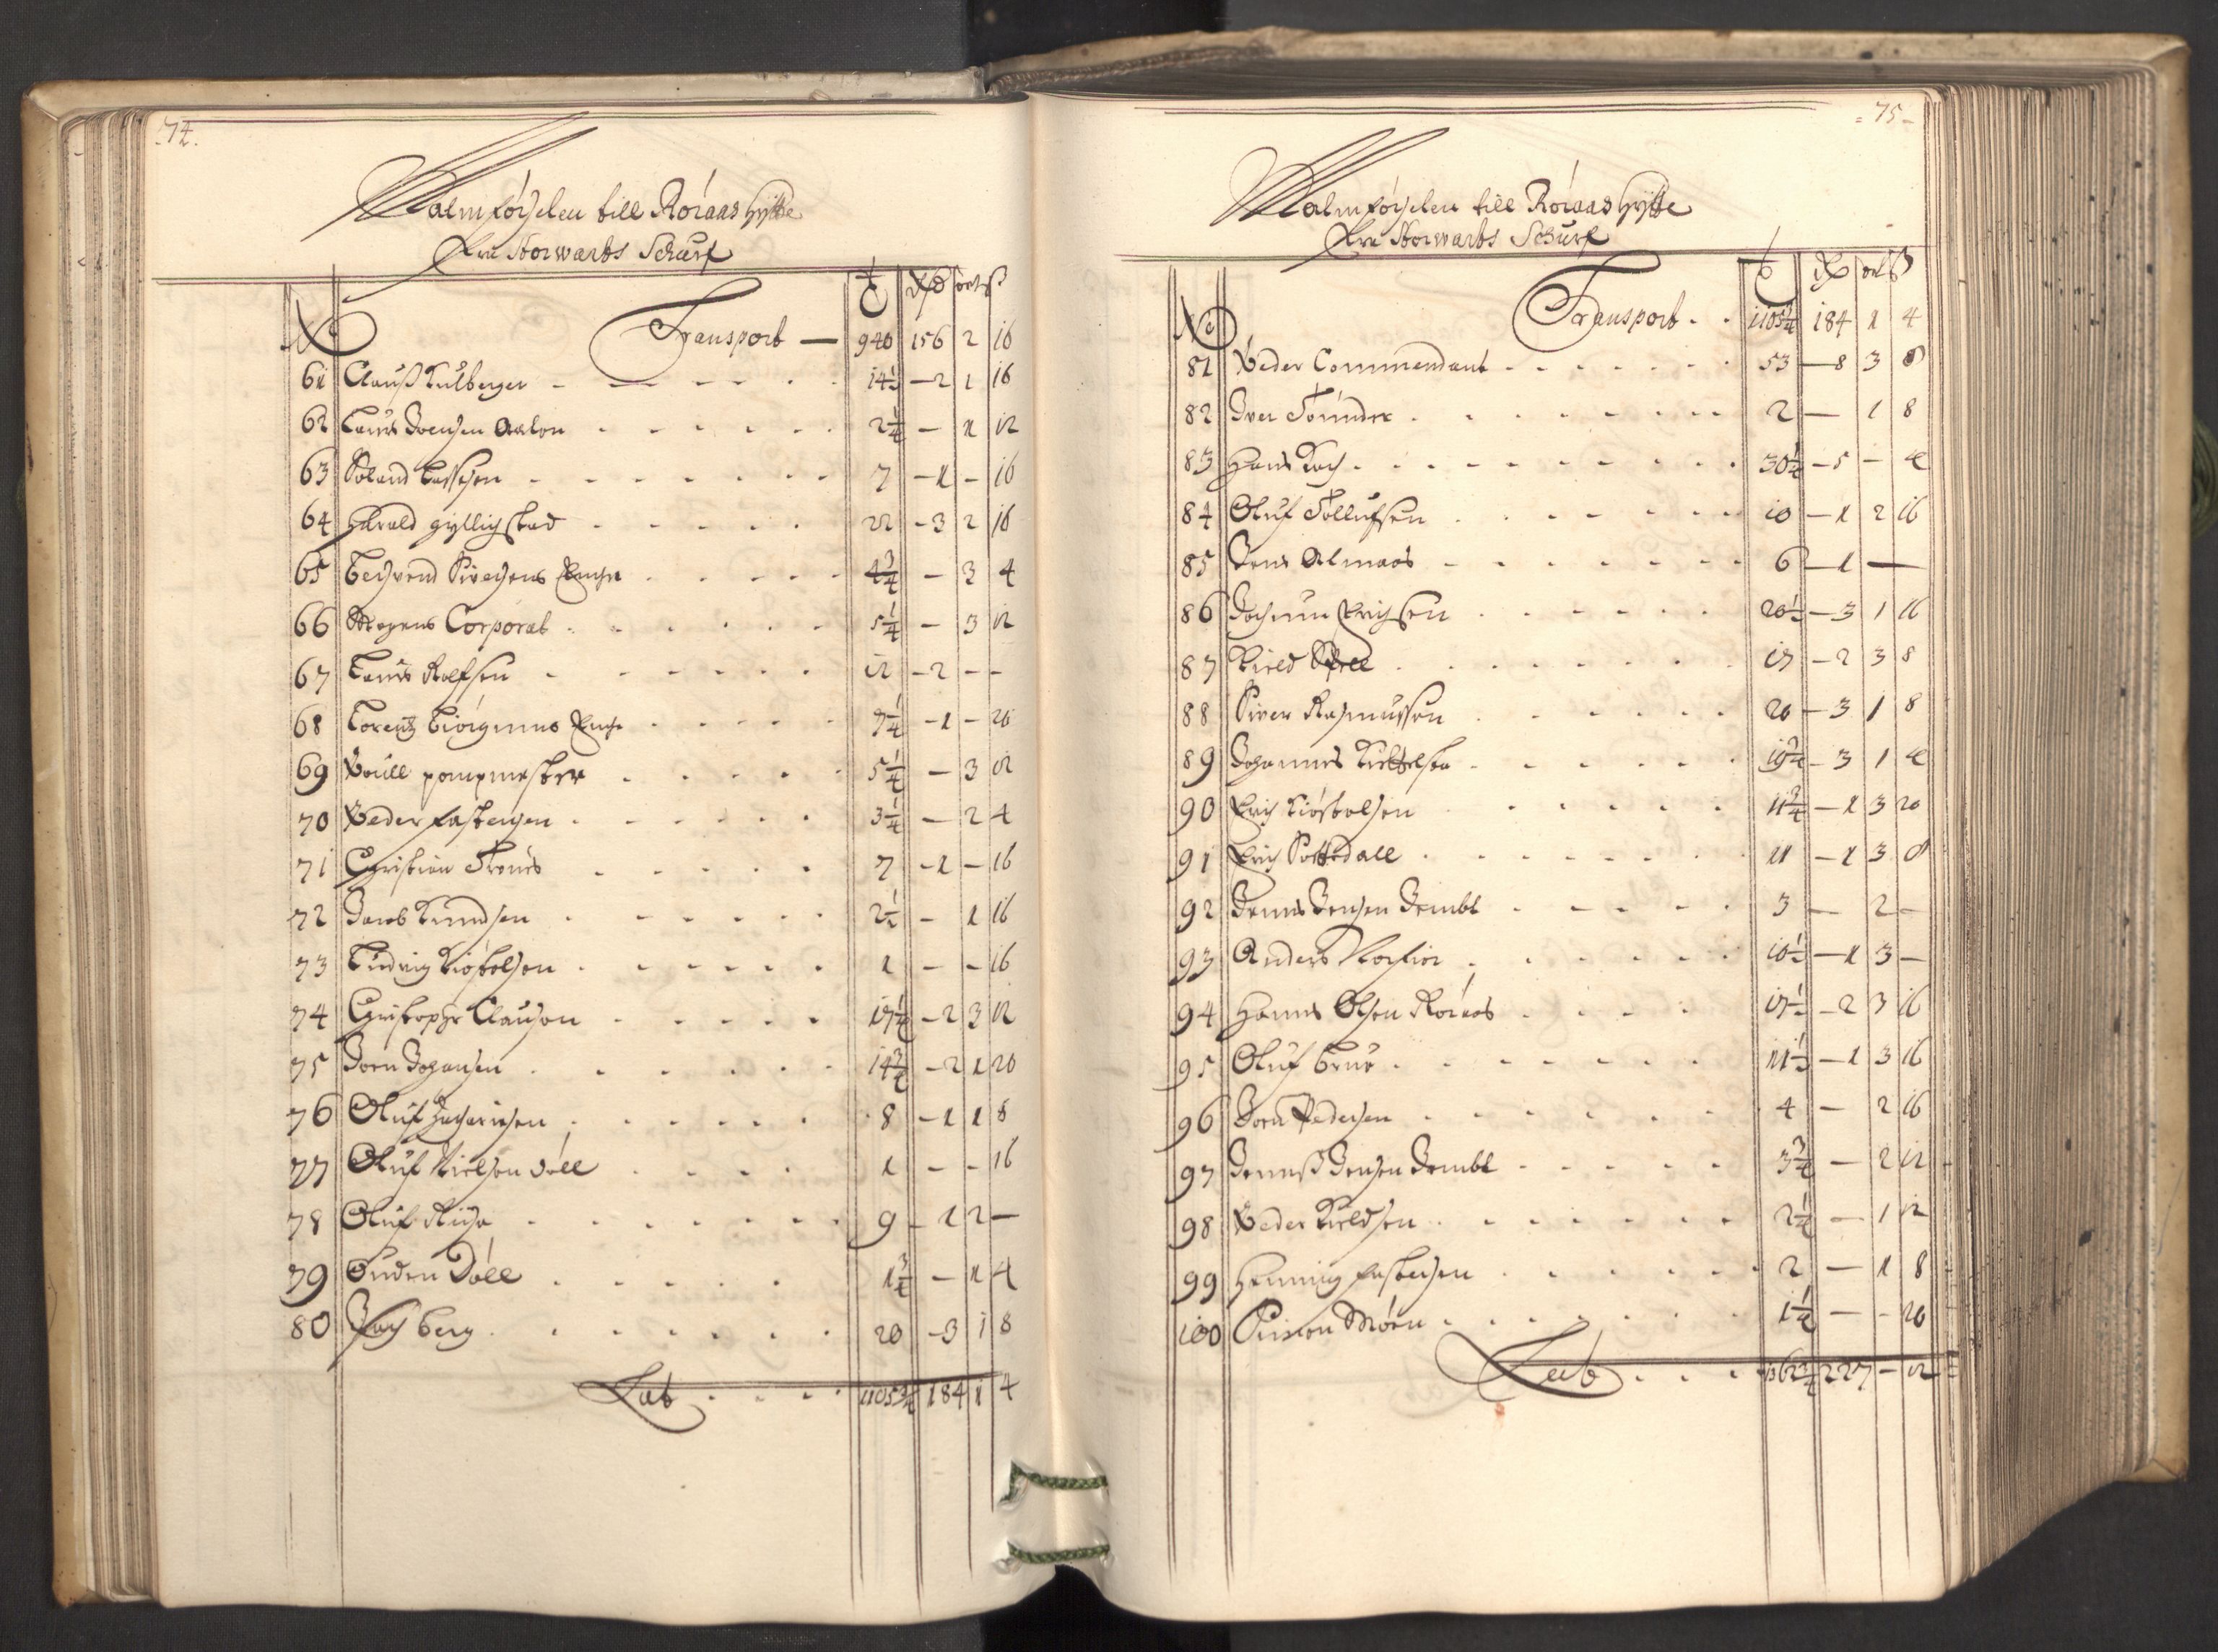 74.
Malmførselen till Röraas Hÿtte
Fra Storwarts Schürf
No Transport — 940 156 2 16
61 Clauß Kulberger 14½ — 2 1 16
62 Laurs Joensen Aalen 2¼ — 1 12
63 Roland Lassesen 7 — 1 — 16
64 Harald gÿllichstad 22 — 3 2 16
65 Siversens Encke 4¾ — 3 4
66 Mogens Corporal 5¼ — 3 12
67 Laurs Rolfsen 12 — 2 — —
68 Lorentz Encke 7¼ — 1 — 20
69 Poull pompmester 5¼ — 3 12
70 Peder Fastersen 3¼ — 2 4
71 Christian Trønes 7 — 1 — 16
72 Jacob Knudsen 2½ — 1 16
73 Ludvig Kiøstelsen 1 — — 16
74 Christopher Clausen 17¼ — 2 3 12
75 Joen Johansen 14¾ — 2 1 20
76 Oluf Zachariesen 8 — 1 1 8
77 Oluf Nielsen Døll 1 — — 16
78 Oluf Riise 9 — 1 2 —
79 Enden Døll 1¾ — 1 4
80 Isach berg 20 — 3 1 8
Lat 1105¾ 184 1 4
= 75 –
Malmførselen till Röraas Hÿtte
Fra Storwarts Schürf
No Transport 1105¾ 184 1 4
81 Peder Commendant 53 — 8 3 8
82 Iver Tønder 2 — 1 8
83 Hans Koch 30¼ — 5 — 4
84 Oluf Tollufsen 10 — 1 2 16
85 Jens Almaas 6 — 1 —
86 Jochum Erichsen 20½ — 3 1 16
87 Kield 17 — 2 3 8
88 Siver Rasmussen 20 — 3 1 8
89 Johannes Kiettelsta 19¾ — 3 1 4
90 Erich Kiøstelsen 11¾ — 1 3 20
91 Erich Sottedall 11 — 1 3 8
92 Jenns Jensen Jembt 3 — 2 —
93 Anders Morfior 10½ — 1 3 —
94 Hanns Olsen Röraas 17½ — 2 3 16
95 Oluf brue 11½ — 1 3 16
96 Joen Pedersen 4 — 2 16
97 Jennß Jensen Jembt 3¾ — 2 12
98 Peder Kieldsen 2¼ — 1 12
99 Henning Fastersen 2 — 1 8
100 Simon Møen 1¼ — — 20
Lat 1362¾ 227 — 12